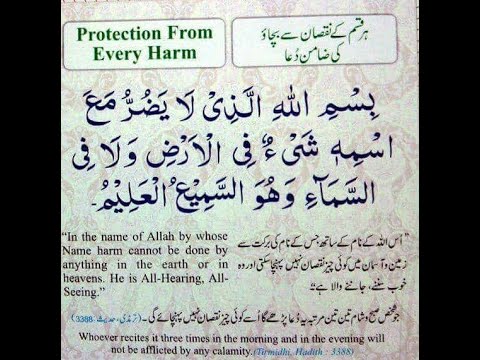 Protection From
Every Harm
ہر قسم کے نقصان سے بچاؤ
کی ضامن دُعا
بِسْمِ اللهِ الَّذِیْ لَا یَضُرُّ مَعَ
اسْمِهٖ شَیْءٌ فِی الْاَرْضِ وَلَا فِی
السَّمَآءِ وَهُوَ السَّمِیْعُ الْعَلِیْمُ۔
“In the name of Allah by whose
Name harm cannot be done by
anything in the earth or in
heavens. He is All-Hearing, All-
Seeing.”
”اُس اللہ کے نام کے ساتھ جس کے نام کی برکت سے
زمین و آسمان میں کوئی چیز نقصان نہیں پہنچا سکتی اور وہ
خوب سننے، جاننے والا ہے“
جو شخص صبح و شام تین تین مرتبہ یہ دُعا پڑھے گا اُسے کوئی چیز نقصان نہیں پہنچائے گی۔ (ترمذی، حدیث: 3388)
Whoever recites it three times in the morning and in the evening will
not be afflicted by any calamity. (Tirmidhi, Hadith : 3388)